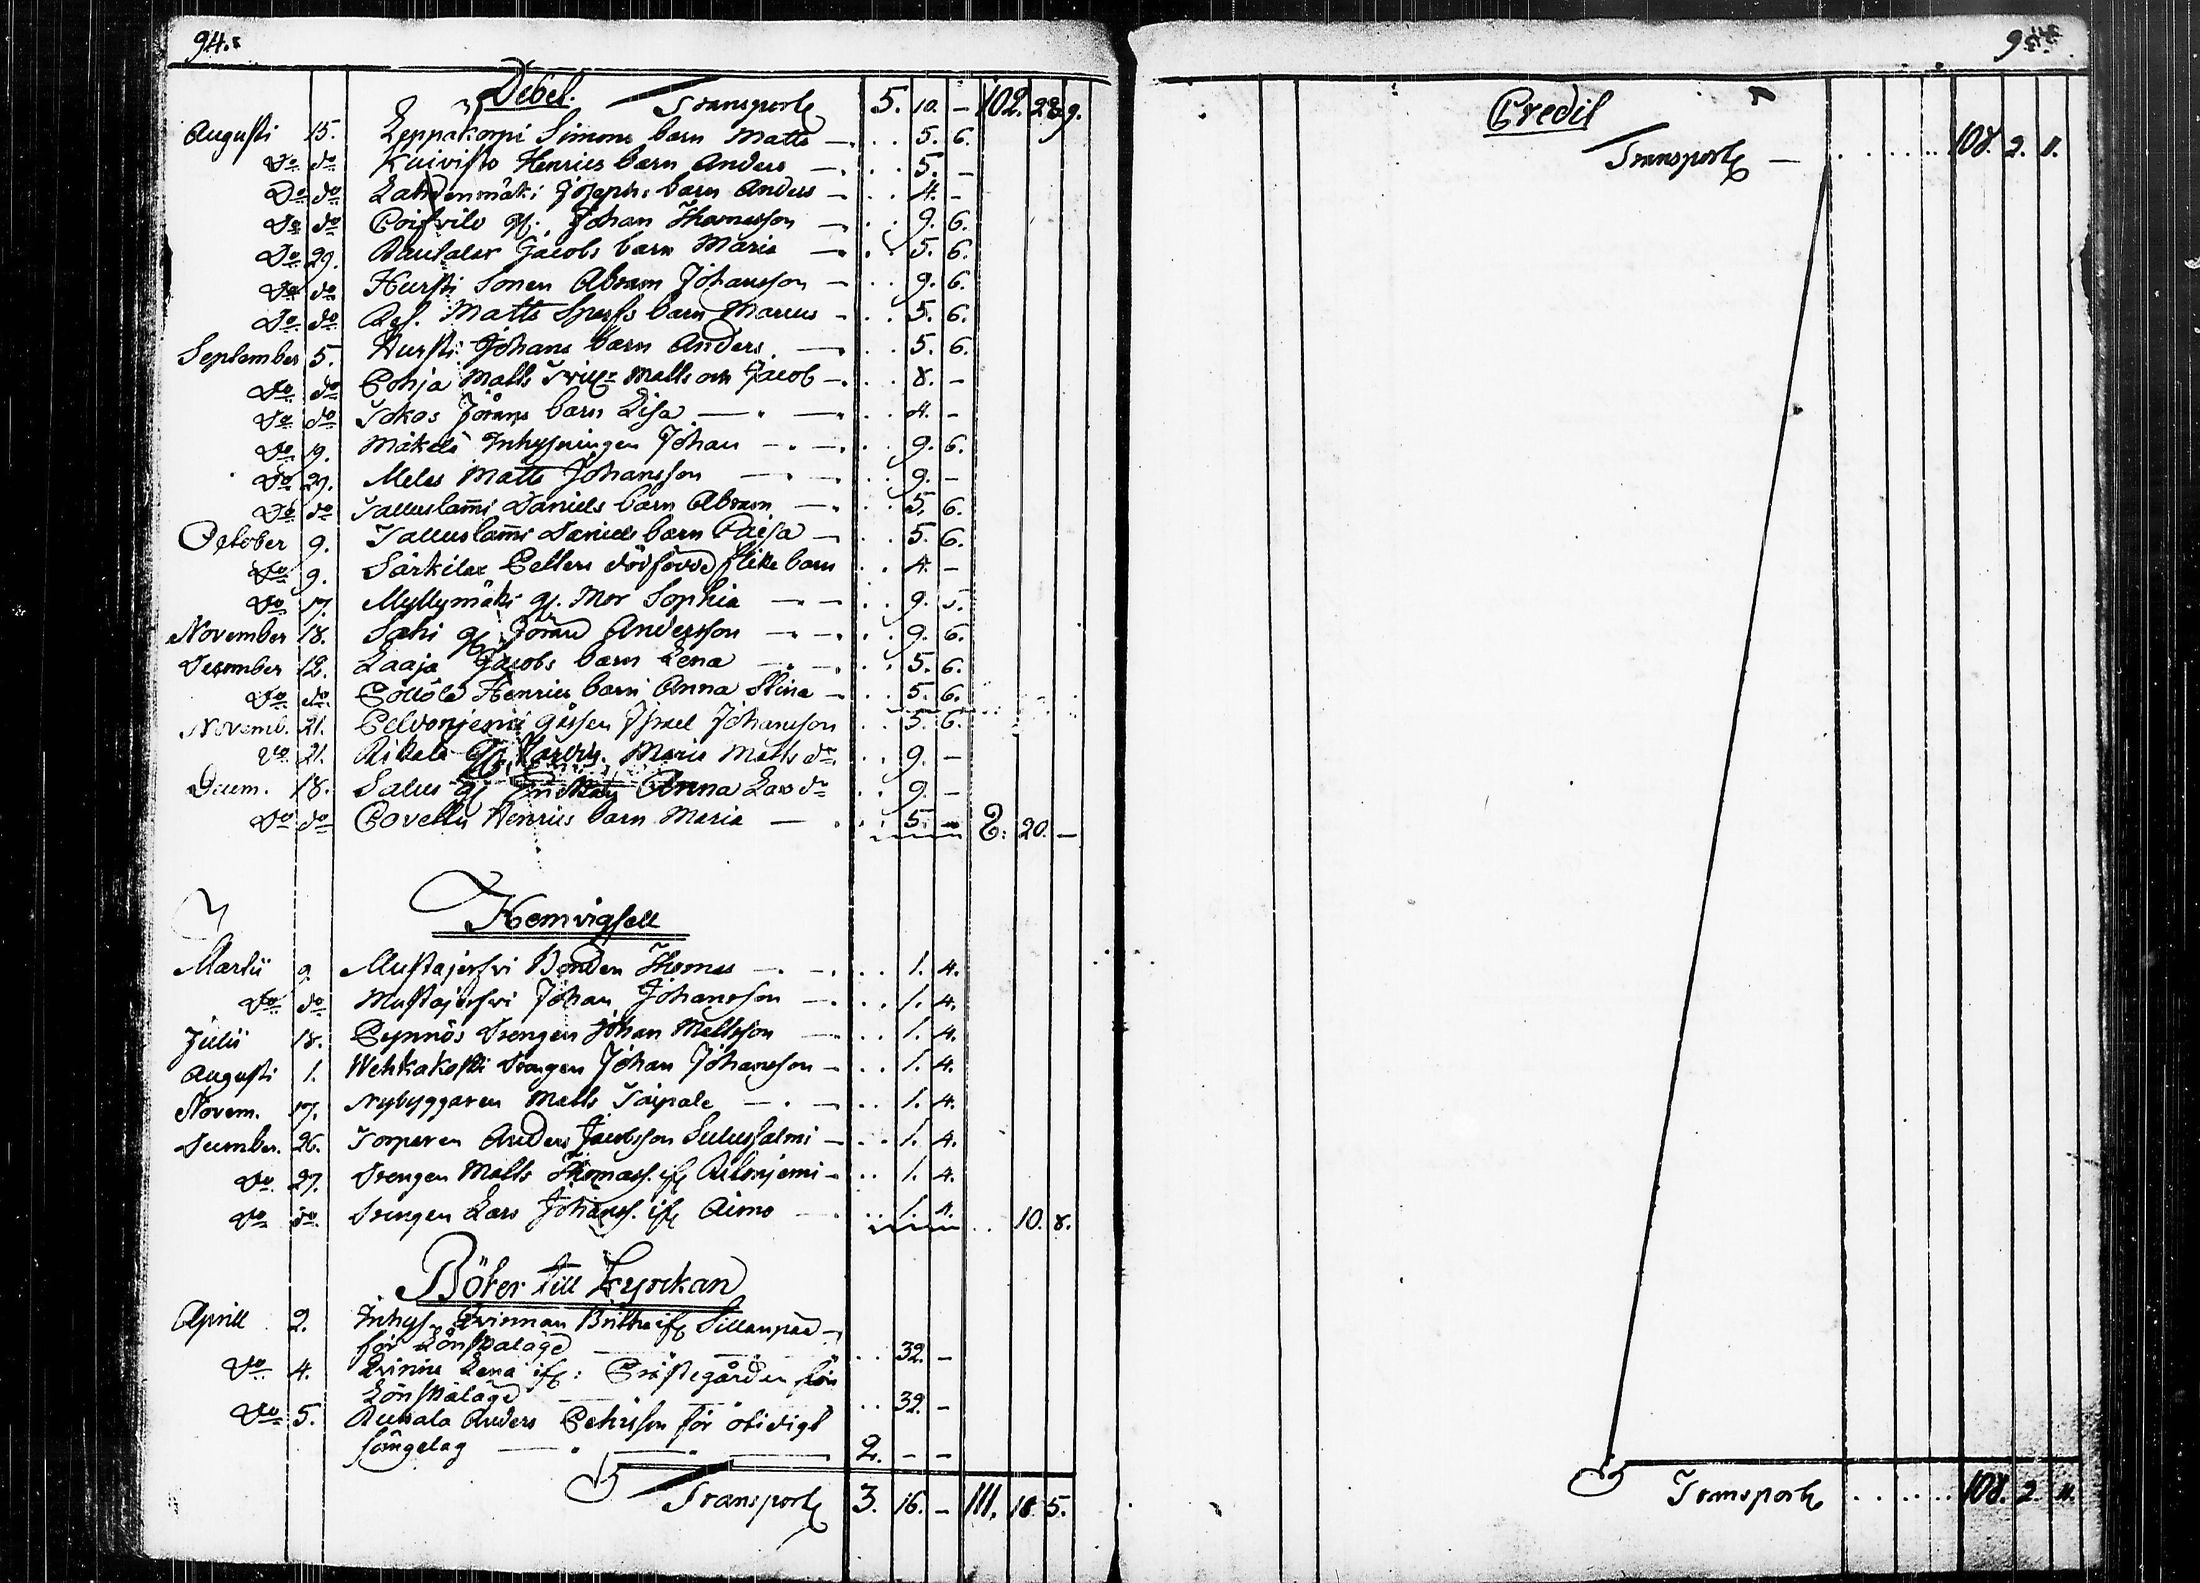 94.
Debet. Transport 5. 10. – 102. 28. 9.
Augusti 15. Leppakorpi Simons barn Matts – . . 5. 6.
Do do Kuivisto Henrics barn Anders – . . 5. –
Do do Lahdenmäki Josephs barn Anders – . . 4. –
Do do Johan Thomasson – . . 9. 6.
Do 29. Jacobs barn Maria – . . 5. 6.
Do do Hursti Sonen Abram Johansson – . . 9. 6.
Do do Matts barn Marcus – . . 5. 6.
September 5. Hursti Johans barn Anders – . . 5. 6.
Do do Pohja Matts Matts och Jacob – . . 8. –
Do do Jokos Jörans barn Lisa – . . 4. –
Do 19. Mäkelä Inhysningen Johan – . . 9. 6.
Do 29. Melas Matts Johansson – . . 9. –
Do do Talluslammi Daniels barn Abram – . . 5. 6.
October 9. Talluslammi Daniels barn Caisa – . . 5. 6.
Do 9. Särkilax Petters dödfödde flike barn . . 4. –
Do 17. Myllymäki Mor Sophia – . . 9. 5.
November 18. Jöran Andersson – . . 9. 6.
December 12. Laaja Jacobs barn Lena – . . 5. 6.
Do do Henrics barn Anna Stina – . . 5. 6.
Novemb. 21. gåssen Israel Johansson . . 5. 6.
Do 21. Maria Matts dr . . 9. –
Decem. 18. Salus Anna Lars dr . . 9. –
Do do Henrics barn Maria – . . 5. – 2. 20. –
Hemvigsell
Martii 9. Mustajerfvi Bonden Thomas – . . 1. 4.
Do do Mustajerfvi Johan Johansson – . . 1. 4.
Julii 18. Pynnös Drengen Johan Mattsson – . . 1. 4.
Augusti 1. Wehkakoski Drengen Johan Johansson – . . 1. 4.
Novem. 17. Nybyggaren Matts Taipale – . . 1. 4.
December. 26. Torparen Anders Jacobsson Sulussalmi – . . 1. 4.
Do 27. Drengen Matts Thomass. ifr – . . 1. 4.
Do do Drengen Lars Johanss. ifr Aimo – . . 1. 4. . . 10. 8.
Böter till Kyrckan
Aprill 2. Inhys. Qvinnan Britha ifr Sillanpää –
för Lönskaläge – . . 32. –
Do 4. Lena ifr: Prästegården för
Lönskaläge – . . 32. –
Do 5. Anders Pehrsson för otidigt
sängelag – 2. – –
Transport 3. 16. – 111. 18. 5.
Credit
Transport – . . . . . 108. 2. 11.
Transport . . . . . 108. 2. 11.